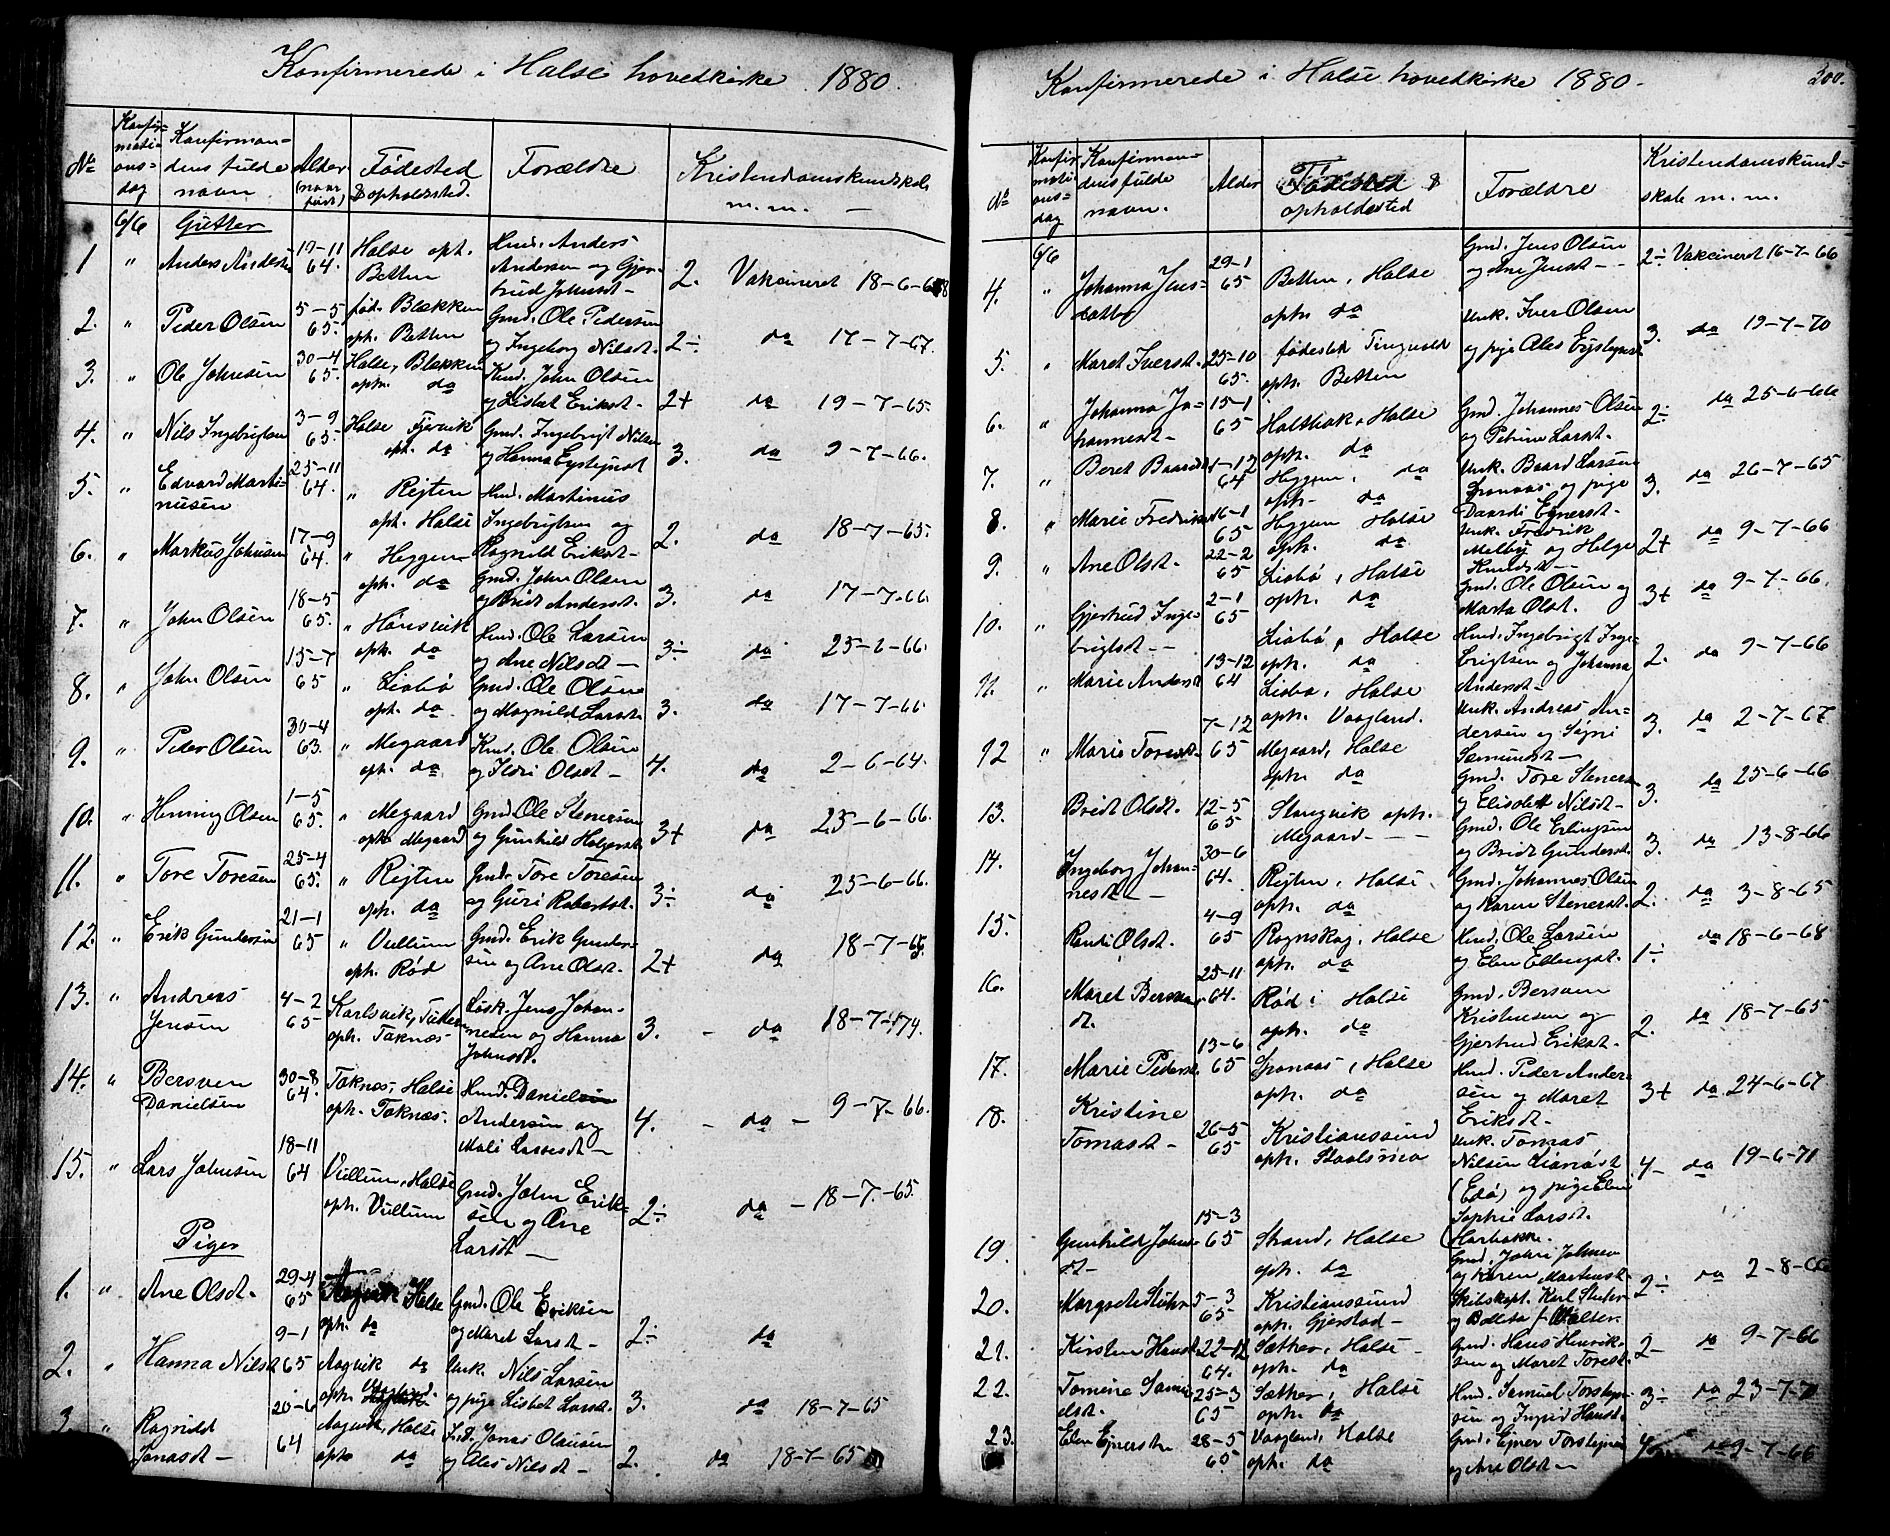 Konfirmerede i Halse hovedkirke 1880.
No
Konfir-
mati-
ons-
dag
Konfirman-
dens fulde
navn
Alder
(naar
født)
Fødested
& opholdssted.
Forældre
Kristendomskundskab
m. m. —
6/6 Gutter
1 " Anders Anders 19-11 64. Halse oph. Betten Hmd. Anders Andersen og Gjer-trud Johnsdt- 2. Vakcineret 18-6-68
2. " Peder Olsen 5-5 65. fød. Blekken oph. Betten Gmd. Ole Pedersen og Ingeborg Nilsdt. 2÷ da 17-7-67.
3. " Ole Johnsen 30-4 65. Halse, Blekken oph. da Kmd. John Olsen og Lisbet Eriksdt- 2+ da 19-7-65.
4. " Nils Ingebrigtsen 3-9 65. Halse Fjervik oph. da Gmd. Ingebrigt Nilsen og Hanna Eystensdt 3. da 9-7-66.
5. " Edvard Marti-nusen 25-11 64. " Rejten oph. Halse Hmd. Martinus Ingebrigtsen og Ragnild Eriksdt- 2. da 18-7-65.
6. " Markus Johnsen 17-9 64. " Heggem oph. da Gmd. John Olsen og Brit Andersdt. 3. da 17-7-66.
7. " John Olsen 18-5 65. " Hønsvik oph. da Hmd. Ole Larsen og Ane Nilsdt — 3÷ da 25-6-66.
8. " John Olsen 15-7 65 " Liabø oph. da Gmd. Ole Olsen og Magnild Larsdt. 3. da 17-7-66
9. " Peder Olsen 30-4 63. " Megaard oph. da Kmd. Ole Olsen og Ildri Olsdt — 4. da 2-6-64.
10. " Henning Olsen 1-5 65. " Megaard oph. Megaard Gmd. Ole Stenersen og Gunhild Holgersdt 3+ da 23-6-66.
11. " Tore Toresen 25-4 65. " Rejten oph. da Gmd. Tore Toresen og Guri Robertsdt. 3÷ da 25-6-66.
12. " Erik Gundersen 21-1 65 " Vullum oph. Rød Gmd. Erik Gunder-sen og Ane Olsdt. 2+ da 18-7-65.
13. " Andreas Jensen 4-2 65 Karlsvik, oph. Taknes- Løsk. Jens Johan-nesen og Hanna Johnsdt. 3. - da 18-7-79.
14. " Bersven Danielsen 30-8 64. Taknes- Halse oph. Taknæs. Hmd. Daniel Andersen og Mali Larsdt — 4. - da - 9-7-66.
15. " Lars Johnsen 18-11 64 Vullum, Halse oph. Vullum Gmd. John Erik-sen og Ane Larsdt — 2÷ da - 18-7-65.
Piger
1. " Ane Olsdt. 29-4 65 Halse oph. da Gmd. Ole Eriksen og Maret Larsdt — 2÷ da
2. " Hanna Nilsdt 9-1 65 Aagvik da oph. Unk. Nils Larsen og pige Lisbet Larsdt. 3. da 18-7-65
3. " Ragnild Jonasdt — 20-6 64 Aagvik, Halse oph. da Ind. Jonas Olausen og Ales Nilsdt — 2. da 18-7-65
Konfirmerede i Halse hovedkirke 1880.
200.
No
Konfir-
mati-
ons-
dag
Konfirman-
dens fulde
navn.
Alder
Fødested &
opholdssted
Forældre
Kristendomskund-
skab m. m.
6/6
4. " Johanna Jens-datter 29-1 65 Betten, Halse oph. da Gmd. Jens Olsen og Ane Jensdt- - 2÷ Vakcineret 16-7-66
5. " Maret Iversdt. 25-10 65. fødested Tingvold oph. Betten Unk. Iver Olsen og pige Ales Eystensdt 3. da 19-7-70
6. " Johanna Jo-hannesdt- 15-1 65 Halsbak, Halse oph. da Gmd. Johannes Olsen og Petrine Larsdt- 2÷ da 25-6-66
7. " Beret Baardsdt 1-12 64 Heggem, da oph- da Unk. Baard Larsen Gronaas og pige Baardi Ejnersdt- 3. da 26-7-65
8. " Marie Fredriks 16-1 65 Heggem Halse oph. da Unk. Fredrik Melby og Helge Knudsdt- 2+ da 9-7-66
9. " Ane Olsdt. 22-2 65 Liabø, Halse oph. da Gmd. Ole Olsen og Marta Olsdt. 3+ da 9-7-66.
10. " Gjertrud Inge-brigtsdt- 2-1 65 Liabø, Halse oph. da Hmd. Ingebrigt Inge-brigtsen og Johanna Andersdt- 2. da 9-7-66
11. " Marie Andersdt 13-12 64 Liabø, Halse oph. Vaagland. Unk. Andreas An-dersen og Signi Samundsdt- 3. da 2-7-67
12 " Marie Toresdt- 7-12 65 Megaard, Halse oph. da Gmd. Tore Stenersen og Elisabeth Nilsdt- 3. da 25-6-66
13. Brit Olsdt. 12-5 65 Stangvik oph. Megaard- - Gmd. Ole Erlingsen og Brit Gundersdt. 3. da 13-8-66
14. Ingeborg Johan-nesdt- 30-6 64. Rejten, Halse oph. da Gmd. Johannes Olsen og Karen Stenersdt. 2. da 3-8-65
15. Randi Olsdt. 4-9 65 Rognskog, Halse oph. da Hmd. Ole Larsen og Elen Ellingsdt. 1÷ da 18-6-68
16. Maret Bersven-dt. 25-11 64. Rød i Halse oph. da Gmd. Bersven Kristensen og Gjertrud Eriksdt. 2. da 18-7-65
17. Marie Pedersdt 13-6 65 Gronaas, Halse oph. da Hmd. Peder Ander-sen og Maret Eriksdt- 3+ da 24-6-67
18. Kristine Tomasdt- 26-5 65 Kristianssund oph. Unk. Tomas Nilsen (Edø) og pige Elen Sophie Larsdt. 4- da 19-6-71
19. Gunhild Johns-dt- 15-3 65 Strand, Halse oph. da Gmd. John Johnsen og Karen Martensdt- 2÷ da 2-8-66
20. Margrete 5-3 65 Kristianssund oph. Gjerstad- Skibskapt. Karl
21. Kirsten Hansdt 22-12 64. Sæther, Halse- oph. da Gmd. Hans Henrik-sen og Maret Toresdt- 2- da 9-7-66
22. Tomine Samu-elsdt. 25-3 65 Sæther, Halse oph. da Hmd. Samuel Torstens-sen og Ingrid Hansdt. 3÷ da 23-7-71
23. Elen Ejnersdtr 28-5 65 Vaagland, Halse oph. da Gmd. Ejner Torstensen og Ane Olsdt- da 9-7-66